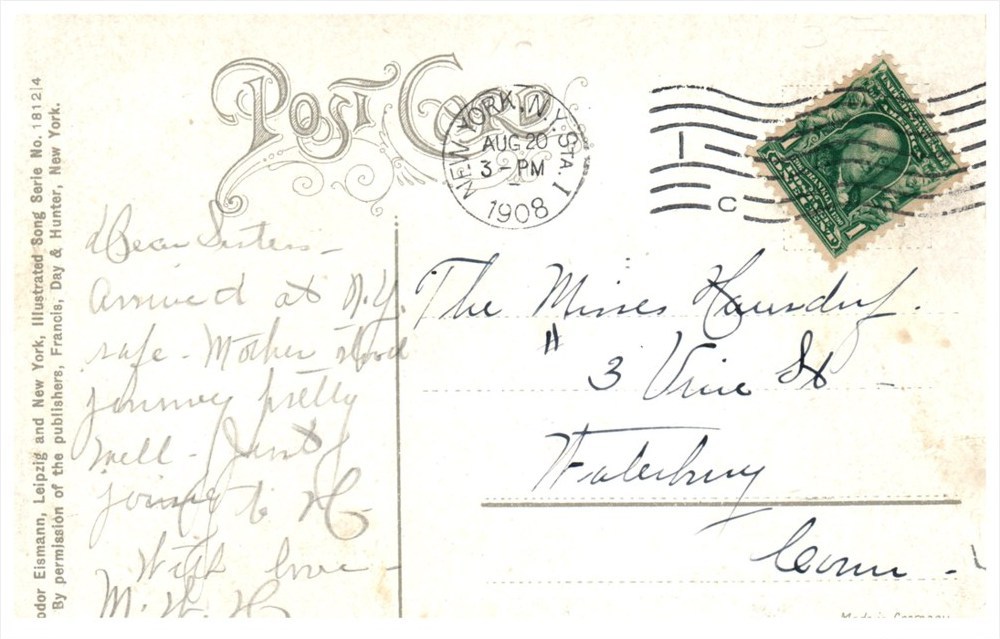 POST CARD
NEW YORK, N.Y. STA. I
AUG 20
3 - PM
1908
C
1
odor Eismann, Leipzig and New York, Illustrated Song Serie No. 1812|4
By permission of the publishers, Francis, Day & Hunter, New York.
Dear Sisters -
Arrived at N.Y.
safe - Mother stood
journey pretty
well - Just
going to H -
With love -
M. W. H
The Misses
# 3 Vine St -
Waterbury
Conn -
Made in Germany